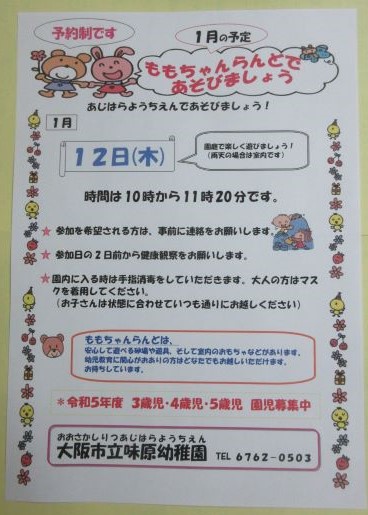 予約制です
1月の予定
ももちゃんらんどで
あそびましょう
あじはらようちえんであそびましょう！
1月
12日(木)
園庭で楽しく遊びましょう！
(雨天の場合は室内です)
時間は10時から11時20分です。
★ 参加を希望される方は、事前に連絡をお願いします。
★ 参加日の2日前から健康観察をお願いします。
★ 園内に入る時は手指消毒をしていただきます。大人の方はマス
クを着用してください。
(お子さんは状態に合わせていつも通りにお越しください)
ももちゃんらんどは、
安心して遊べる砂場や遊具、そして室内のおもちゃなどがあります。
幼児教育に関心がおありの方はどなたでもお越しいただけます。
お待ちしています。
＊令和5年度 3歳児・4歳児・5歳児 園児募集中
おおさかしりつあじはらようちえん
大阪市立味原幼稚園 TEL 6762-0503